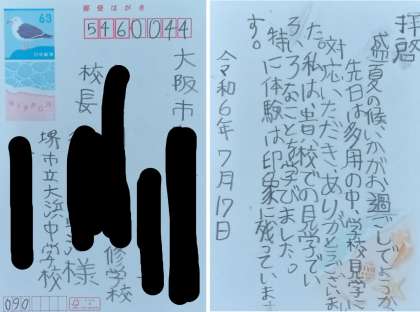 郵便はがき
63
5460044
大阪市
校長
様
修学校
堺市立大浜中学校
090
拝啓
盛夏の候、いかがお過ごしでしょうか。
先日は多用の中、学校見学に
対応いただきありがとうございまし
た。私は、貴校での見学でい
ろいろなことを学びました。
特に体験は印象に残っていま
す。
令和6年7月17日